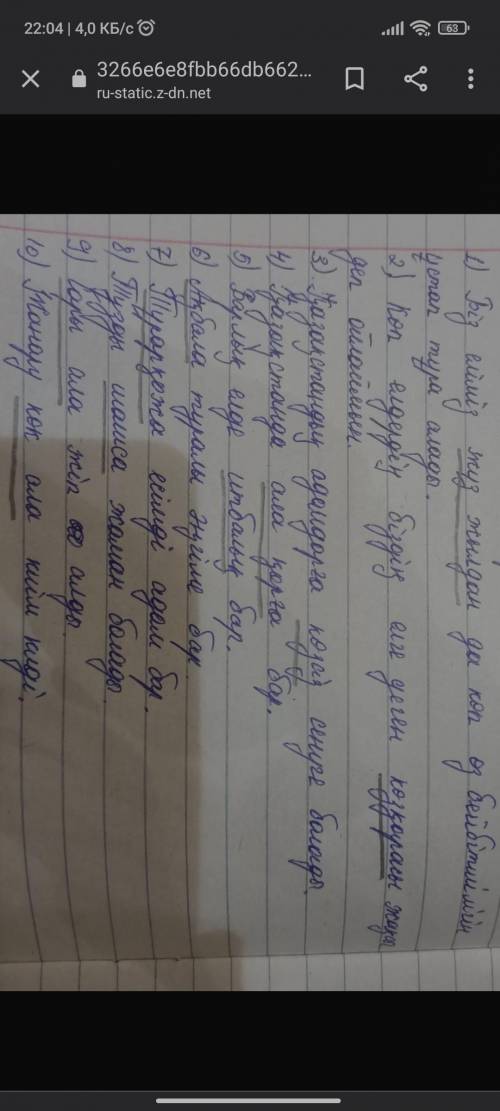 22:04 | 4,0 КБ/с
63
3266e6e8fbb66db662...
ru-static.z-dn.net
1) Біз еліміз жүз жылдан да көп өз бейбітшілігін
ұстап тұра алады.
2) Көп елдердің біздің елге деген көзқарасы жақсы
деп ойлаймын.
3) Қазақстандық адамдарға көзсіз сенуге болады.
4) Қазақстанда ала қарға бар.
5) Барлық елде итбалық бар.
6) Ақбала туралы әңгіме бар.
7) Тұрарқожа есімді адам бар.
8) Туған шаша жаман болады.
9) Сары ала жіп алды.
10) Жанару көк ала киім киді.